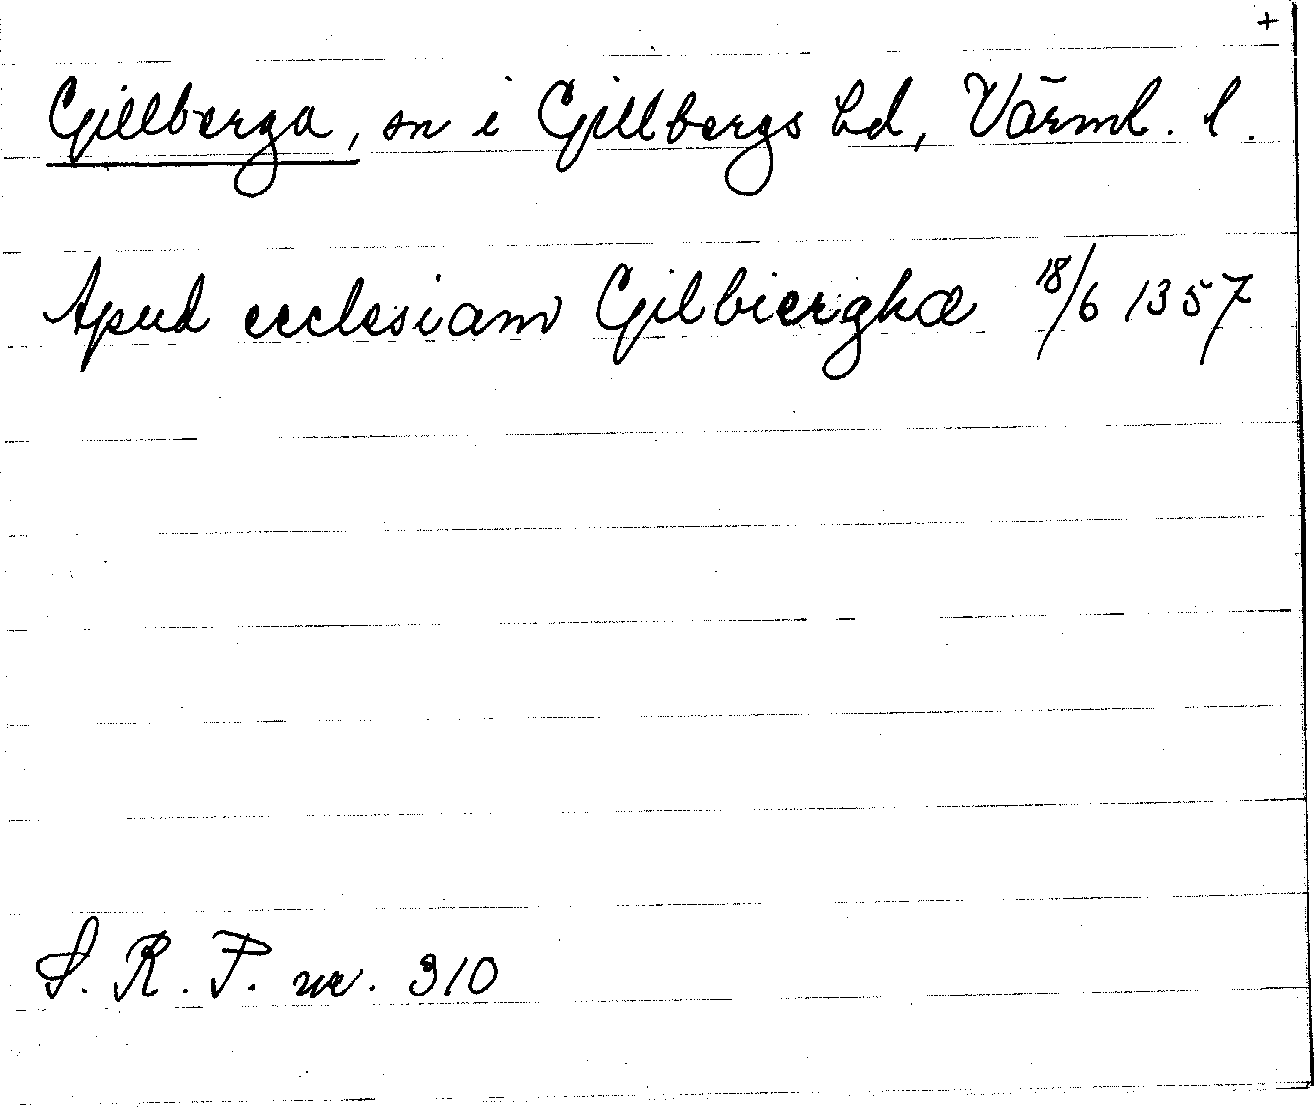 +
Gillberga, sn i Gillbergs hd, Värml. l.
Apud ecclesiam Gilbierghæ 18/6 1357
S. R. P. nr. 310